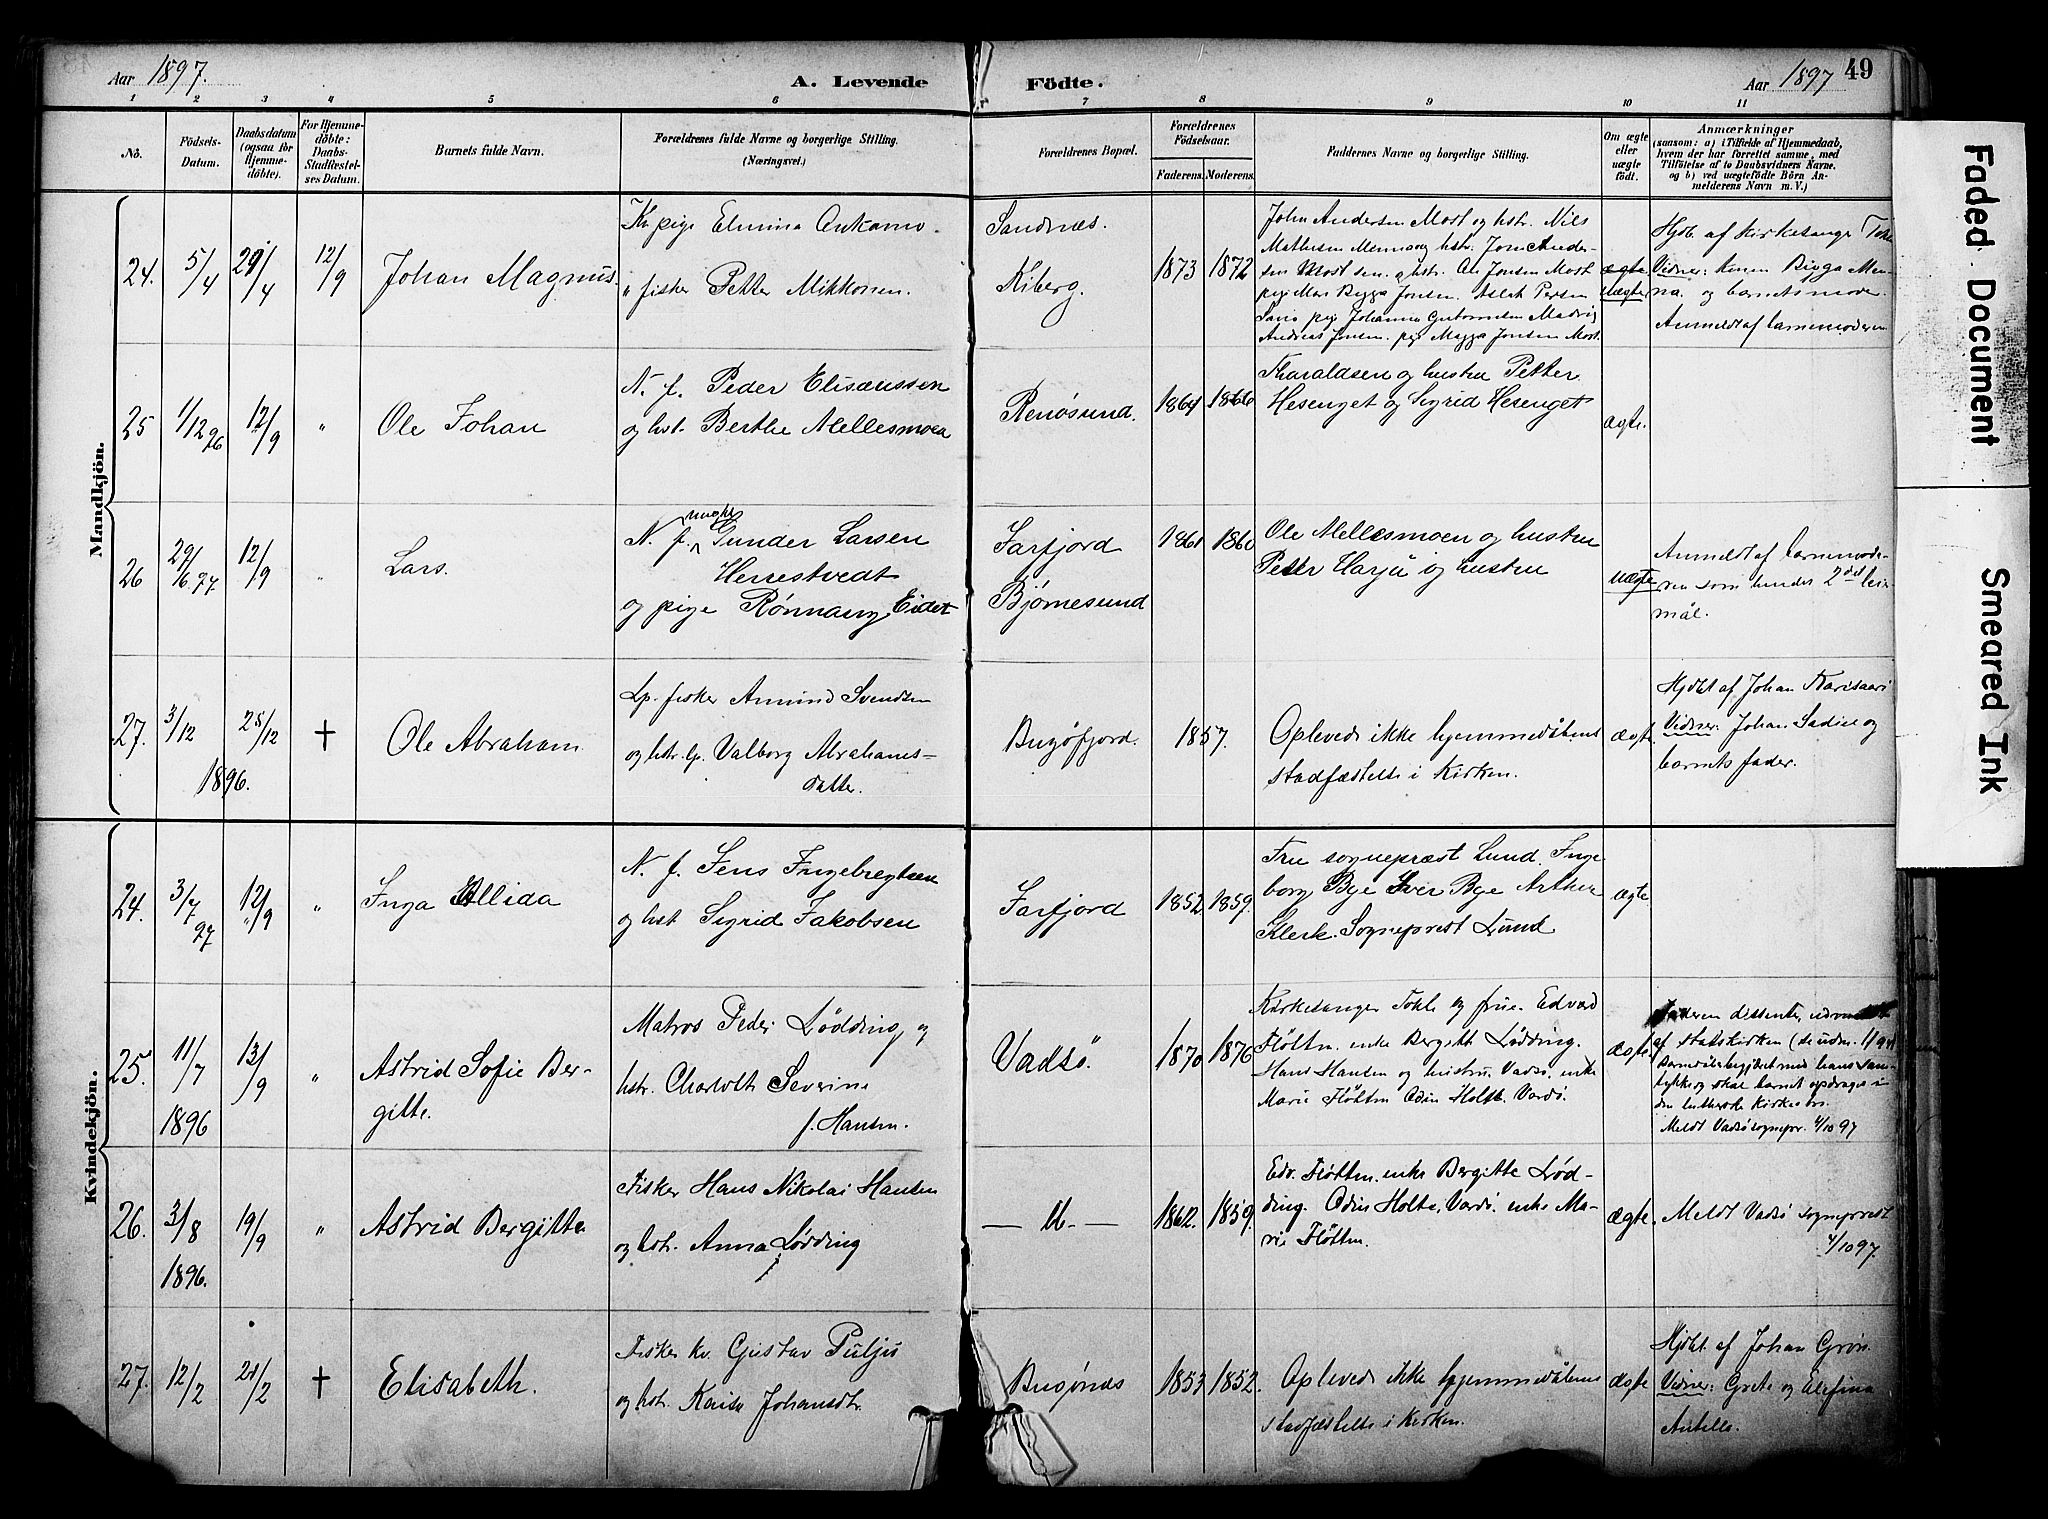 Aar 1897.
A. Levende
Födte.
Aar 1897
49
1 2 3 4 5 6 7 8 9 10 11
No.
Födsels-
Datum.
Daabsdatum
(ogsaa for
Hjemme-
döbte).
For Hjemme-
döbte:
Daabs-
Stadfæstel-
ses Datum.
Barnets fulde Navn.
Forældrenes fulde Navne og borgerlige Stilling.
(Næringsvei.)
Forældrenes Bopæl.
Forældrenes
Födselsaar.
Faderens. Moderens.
Faddernes Navne og borgerlige Stilling.
Om ægte
eller
uægte
födt.
Anmærkninger
(saasom: a) i Tilfælde af Hjemmedaab,
hvem der har forrettet samme, med
Tilföielse af to Daabsvidners Navne,
og b) ved uægtefödte Börn An-
melderens Navn m. V.)
Mandkjön.
24.
5/4
29/4
12/9
Johan Magnus.
Kv pige Elmina
" fisker Petter Mikkonen.
Sandnæs.
Kiberg.
1873
1872
John Andersen Most og hstr. Nils
Mathisen Menna og hstr. Jon Ander-
sen Most sen. og hstr. Ole Jonsen Most
pige Mari Bigga Jonsen. Aslak Persen
Andreas Jonsen. pige Magga Jonsen Most.
ægte
uægte
Hjdb. af kirkesanger
Vidner: konen Bigga Men-
na. og barnets moder.
Anmeldt af barnemoderen
25
1/12 96
12/9
"
Ole Johan
N. f. Peder Elisæussen
og hst. Berthe Mellesmoen
Renøsund.
1864
1866
Haraldsen og hustru Petter
Hesenget og Sigrid Hesenget
ægte.
26
29/6 97.
12/9
"
Lars.
N. f. ungk. Gunder Larsen
Herrestvedt
og pige Rønnaug Eidet
Jarfjord
Bjørnesund
1861
1860
Ole Mellesmoen og hustru
Peter Harju og hustru
uægte
Anmeldt af barnemode-
ren som hendes 2det leier-
mål.
27.
3/12
25/12
1896.
†
Ole Abraham
Lp. fisker Amund Svendsen
og hstr. lp. Valborg Abrahams-
datter.
Bugøfjord.
1857.
Oplevede ikke hjemmedåbens
stadfæstelse i Kirken.
ægte.
Hjdbt af Johan Karisaari
Vidner: Johan Sadine og
barnets fader.
Kvindekjön.
24.
3/7 97
12/9
"
Inga Allida
N. f. Jens Ingebregtsen
og hst. Sigrid Jakobsen
Jarfjord
1852
1859.
Fru sogneprest Lund. Inge
borg Bye Iver Bye Arthur
Klerk. Sogneprest Lund
ægte
25.
11/7
1896
13/9
"
Astrid Sofie Ber-
gitte.
Matros Peder Lødding og
hstr. Charlotte Severine
f. Hansen.
Vadsö.
1870
1876
Kirkesanger Tokle og frue. Edvard
Fløttm. enke Bergitte Lødding.
Hans Hansen og hustru. Vadsø. enke
Marie Fløttm Odin Holte. Vardø.
ægte
Faderen dissenter, udm
af Statskirken
Barnedåb begjæret med hans Sam-
tykke og skal barnet opdrages i
den lutherske Kirkes tro.
Meldt Vadsø sognepr. 4/10 97
26.
3/8
1896.
19/9
"
Astrid Bergitte
Fisker Hans Nikolai Hansen
og hstr. Anna Lødding
— " —
1862.
1859.
Edv. Fløttm. enke Bergitte Lød-
ding. Odin Holte, Vardø. enke Ma-
rie Fløttm.
ægte.
Meldt Vadsø sogneprest
4/10 97.
27.
12/2
21/2
†
Elisabeth.
Fisker kv. Gustav Puljis
og hstr. Kaisa Johansdtr.
Bugønæs
1853
1852.
Oplevede ikke hjemmedåbens
stadfæstelse i Kirken.
ægte
Hjdbt. af Johan Grøn.
Vidner: Grete og Elefina
Antilla.
Faded Document
Smeared Ink